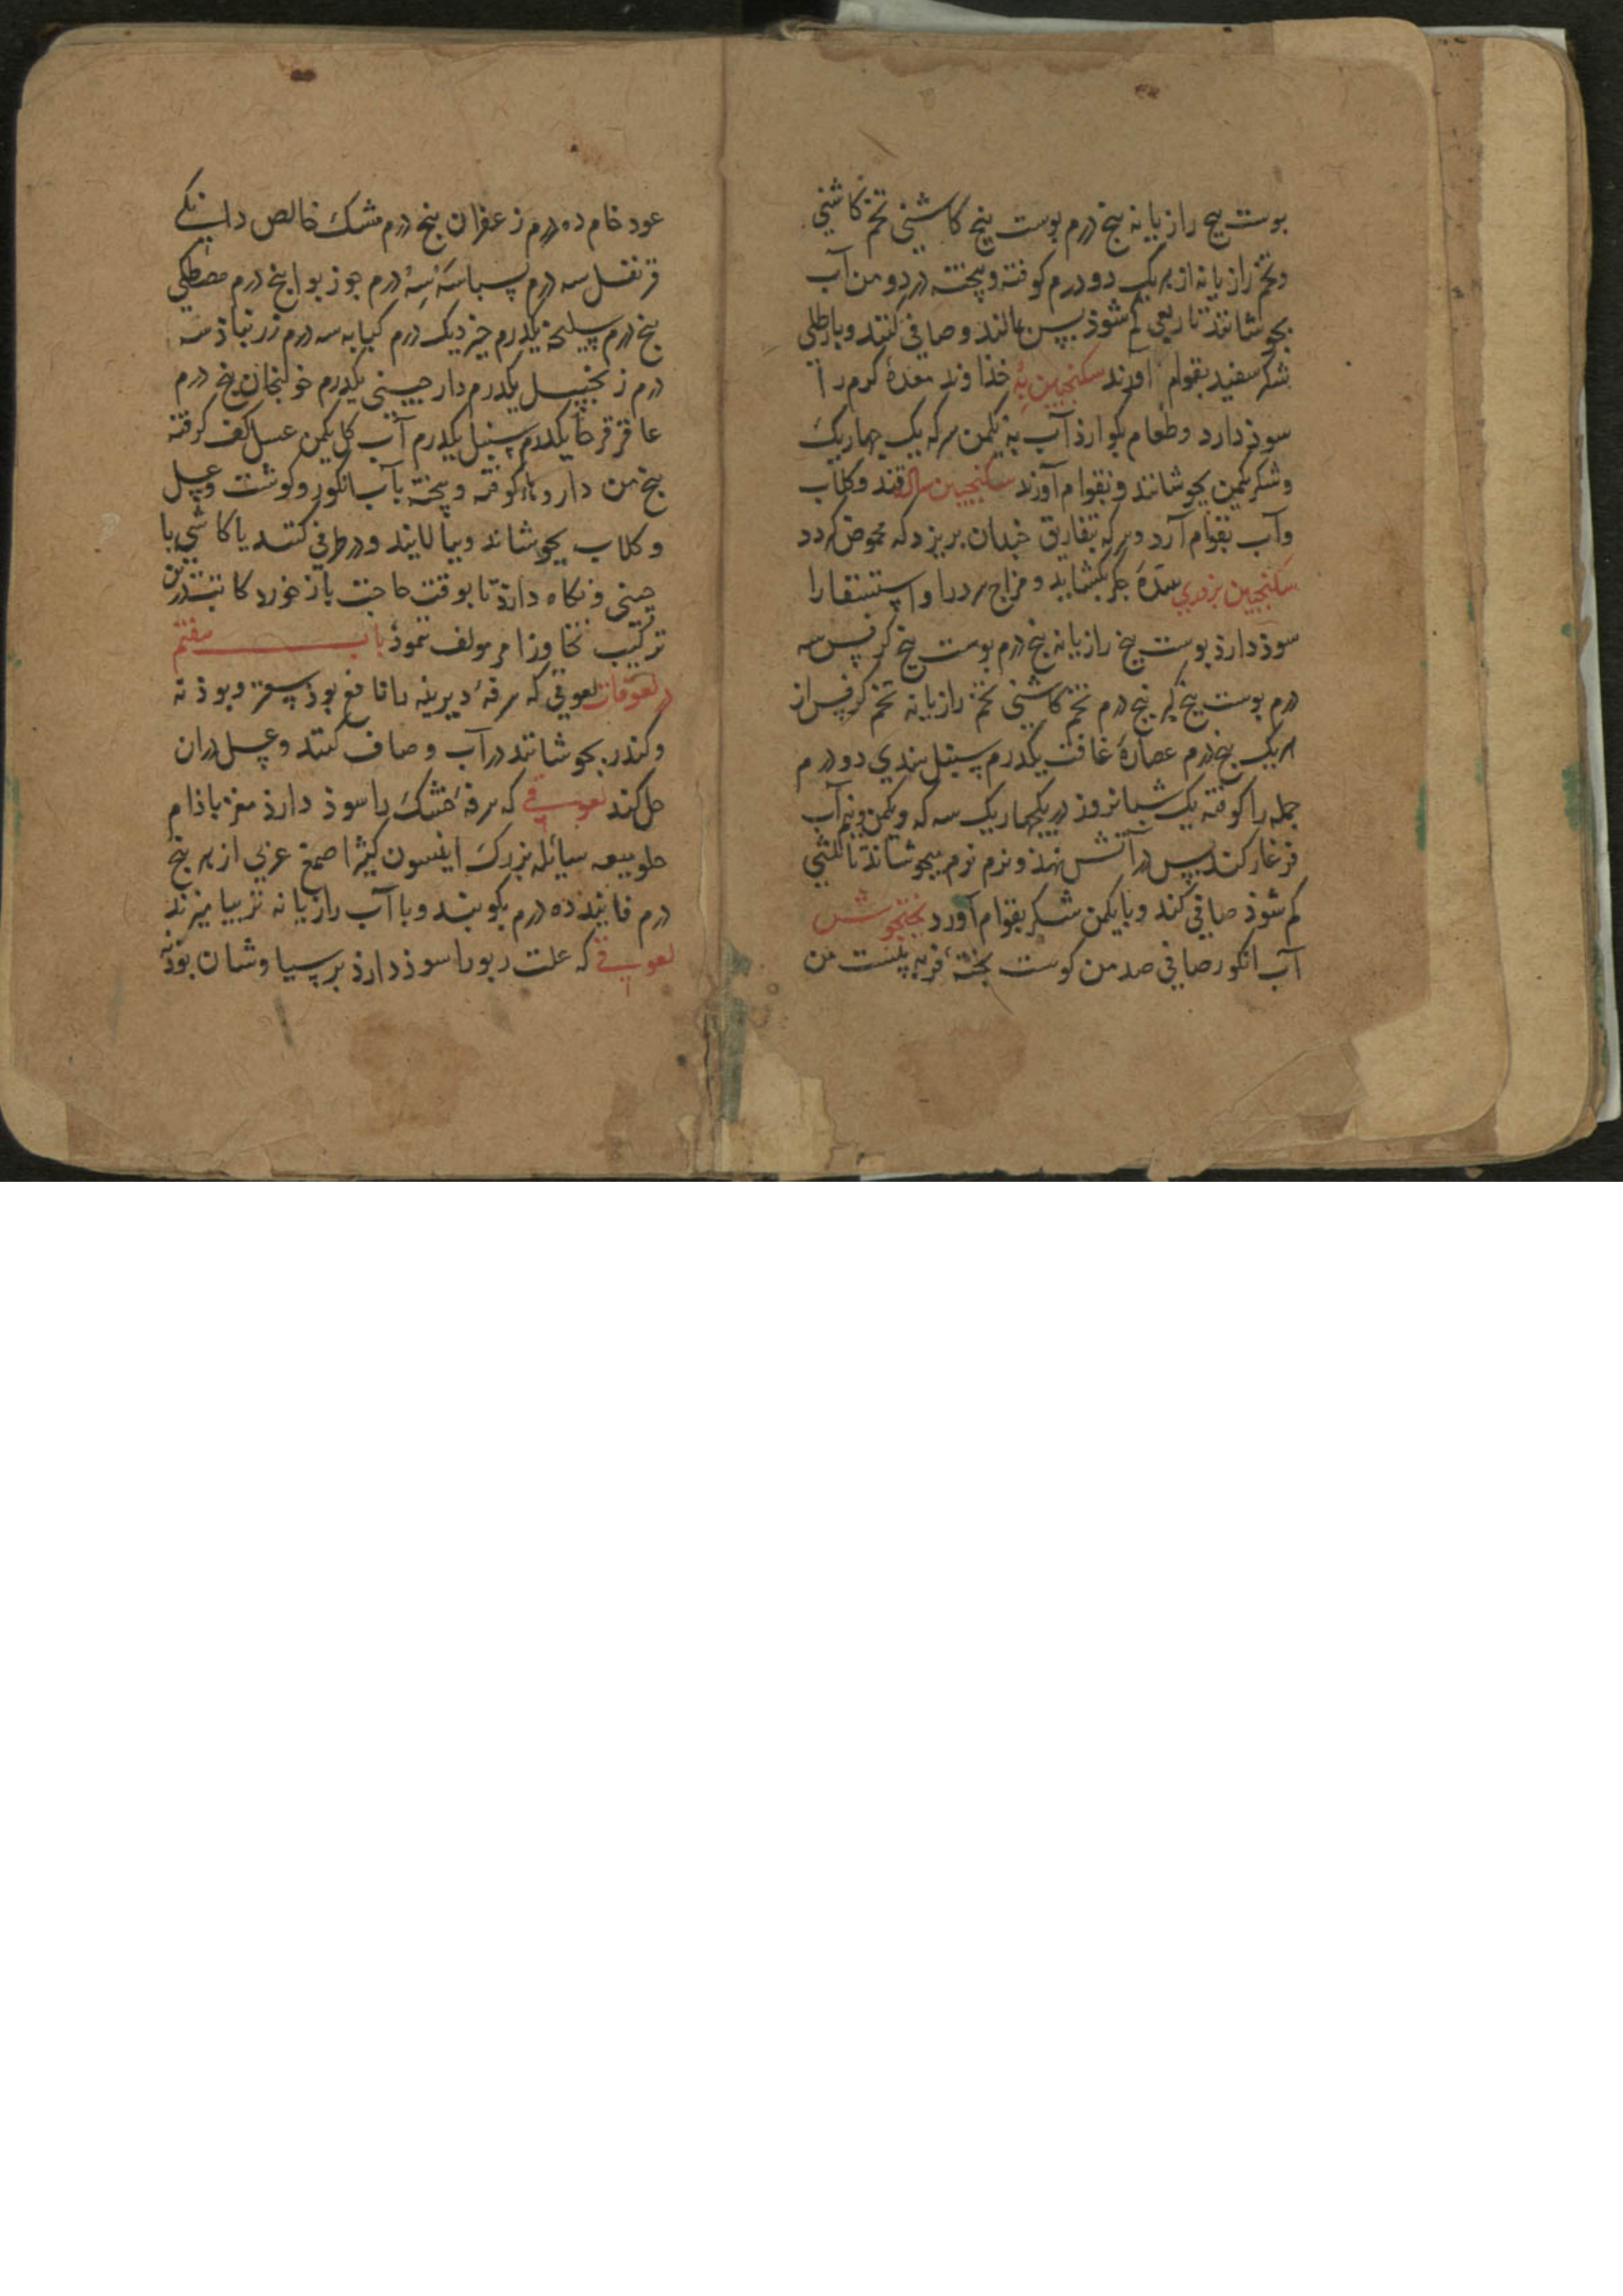 پوست بیخ رازیانه پنج درم پوست بیخ کاشنی تخم کاشنی
وتخم رازیانه از هریک دو درم کوفته وپخته در دو من آب
بجوشانند تا ربعی کم شوذ پس بمالند وصافی کنند وبا رطلی
شکر سفید بقوام آورند سکنجبین به خذاوند معدهٔ کرم را
سوذ دارد وطعام بکوارذ آب به یکمن سرکه یک چهاریک
وشکر یکمن بجوشانند وبقوام آورند سکنجبین ساده قند وکلاب
وآب بقوام آرد وسرکه بتفاریق خبدان بریزد که محوض کردد
سکنجبین بزوری سدهٔ جکر بکشاید ومزاج سرد را واستسقا را
سوذ دارذ پوست بیخ رازیانه پنج درم پوست بیخ کرفس سه
درم پوست بیخ کبر پنج درم تخم کاشنی تخم رازیانه تخم کرفس از
هریک پنج درم عصارهٔ غافت یکدرم سنبل هندی دو درم
جمله را کوفته یک شبانروز در یکچهاریک سرکه ویکمن ونیم آب
فرغار کند پس در آتش نهذ ونرم نرم بجوشاند تا ثلثی
کم شوذ صافی کند وبا یکمن شکر بقوام آورد پختجوش
آب انکور صافی صد من کوست پخته فربه بیست من
عود خام ده درم زعفران پنج درم مشک خالص دانکی
قرنفل سه درم بسباسه سه درم جوز بوا پنج درم مصطکی
پنج درم سلیخه یکدرم خیر دیک درم کبابه سه درم زرنباذ سه
درم زنجبیل یکدرم دارچینی یکدرم خولنجان پنج درم
عاقرقرحا یکدرم سنبل یکدرم آب کل یکمن عسل کف کرفته
پنج من داروها کوفته وپخته بآب انکور وکوشت وعسل
وکلاب بجوشاند وبپالایند ودر ظرفی کنند یا کاشی یا
چینی ونکاه دارذ تا بوقت حاجت باز خورد کاتب درین
ترکیب تجاوز امر مولف نمود باب هفتم
در لعوقات لعوقی که سرفهٔ دیرینه را نافع بوذ سعتر وبوذنه
وکندر بجوشانند در آب وصاف کنند وعسل دران
حل کند لعوقی که سرفهٔ خشک را سوذ دارذ مغز باذام
حلو میعه سائله بزرک انیسون کثیرا صمغ عربی از هر پنج
درم فانیذ ده درم بکوبند وبا آب رازیانه تر بیامیزند
لعوقی که علت ربو را سوذ دارذ برسیاوشان بوذنه